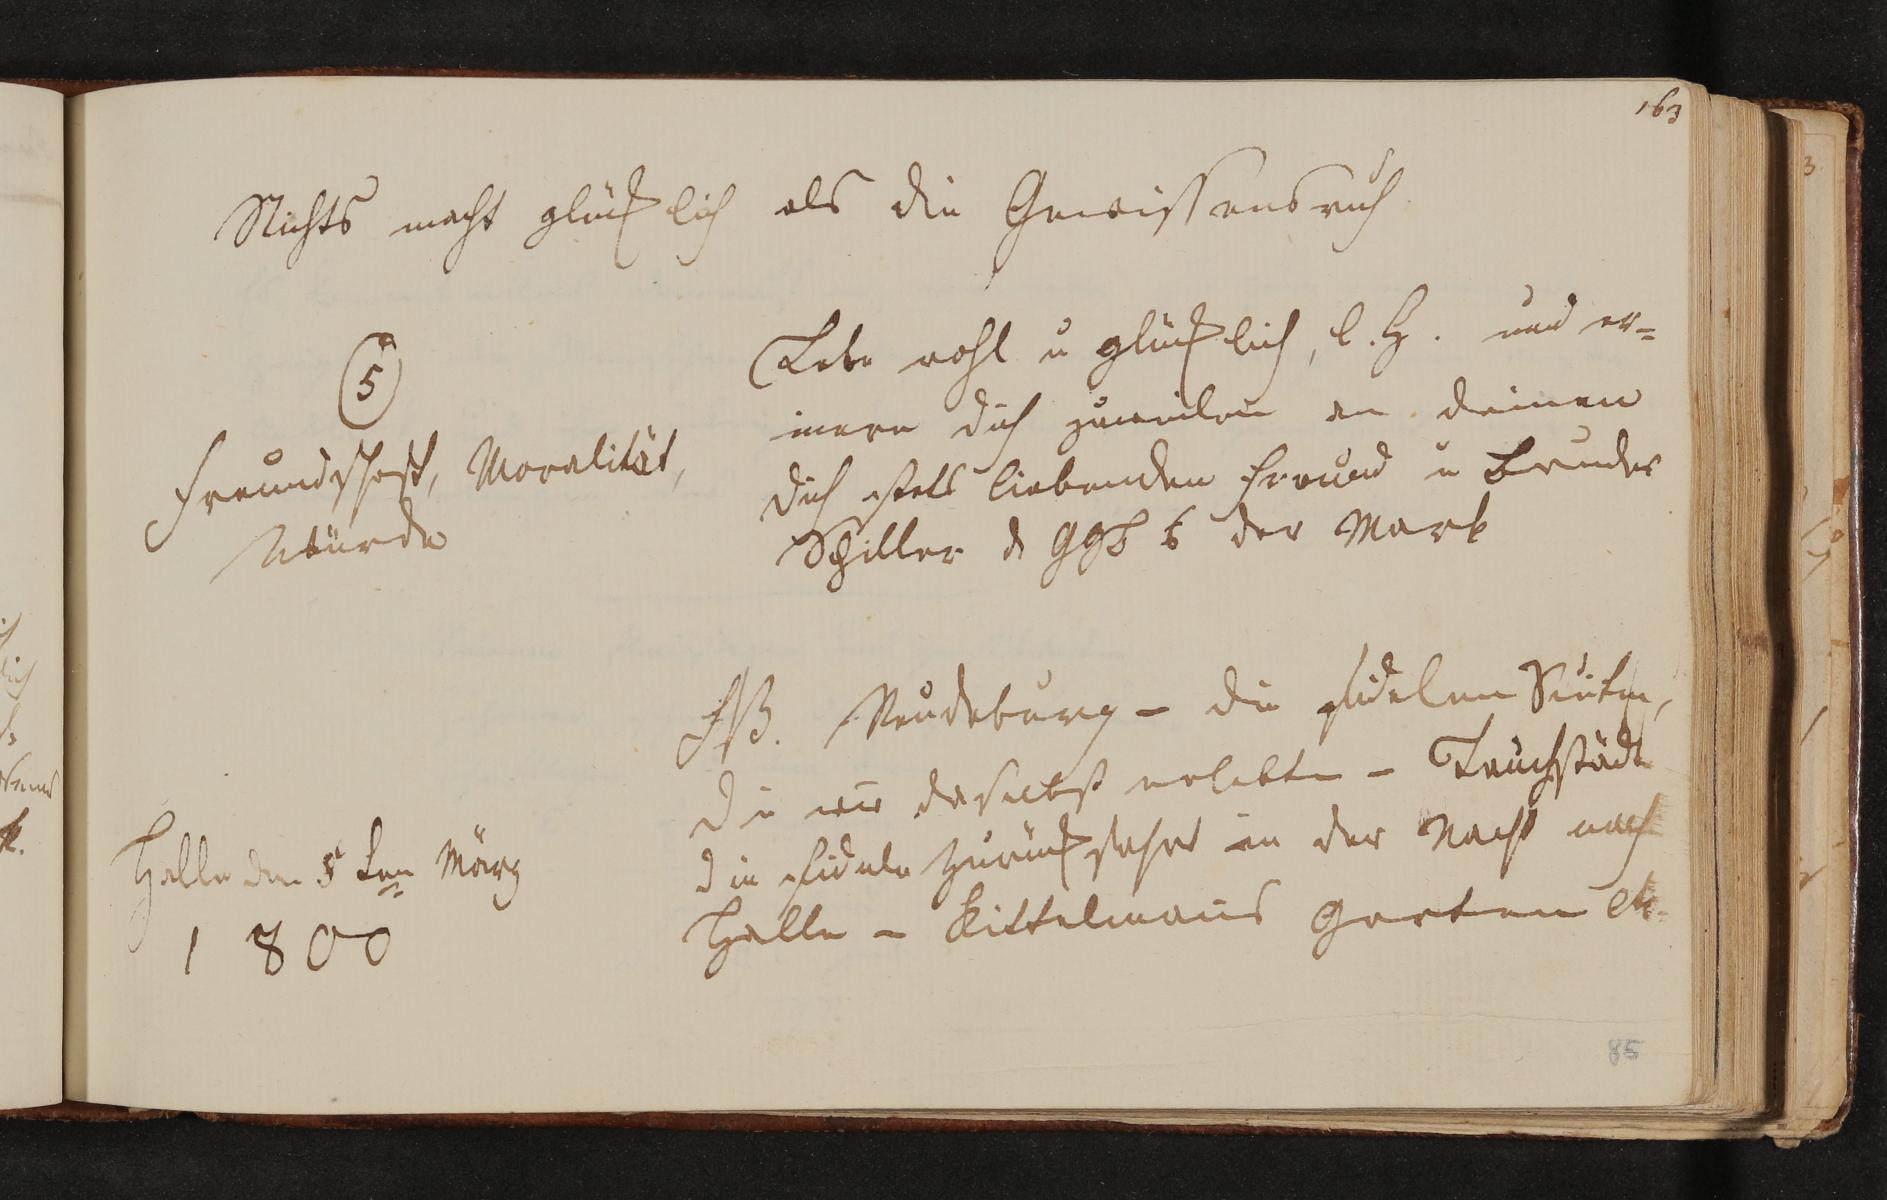 163
Nichts macht glücklich als die Gewissensruh
Lebe wohl u glücklich, l. H. und er=
innere dich zuweilen an deinen
dich stets liebenden Freund u Bruder
Schiller d GGB der Mark
5
Freundschaft, Moralität,
Würde
Halle den 5 ten März
1800
Neudeburg - die fidelen
die wir daselbst erlebten - Lauchstädt
die fidele Zurückfahrt in der Nacht nach
Halle - Kittelmanns Garten etc.
85